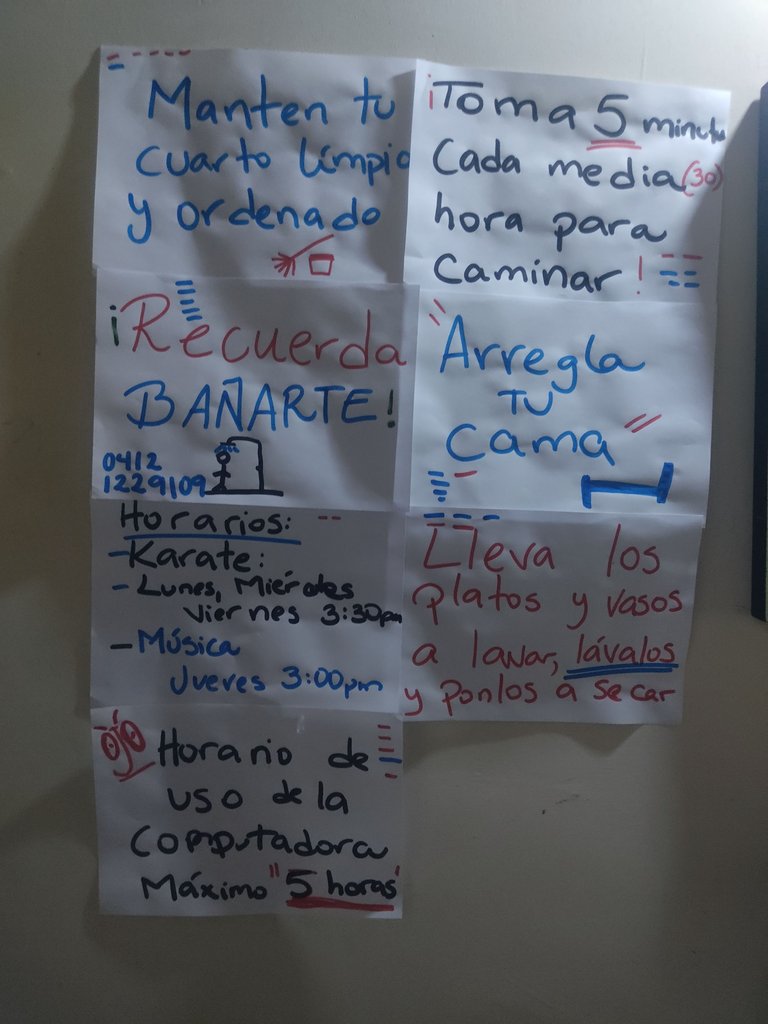 Manten tu
cuarto limpio
y ordenado
¡Toma 5 minutu
Cada media (30)
hora para
Caminar!
¡Recuerda
BAÑARTE!
0412
1229109
Arregla
TU
Cama
Horarios:
- Karate:
- Lunes, Miércoles
Viernes 3:30pm
- Música
Jueves 3:00pm
Lleva los
platos y vasos
a lavar, lávalos
y ponlos a secar
ojo Horario de
uso de la
Computadora
Máximo "5 horas"